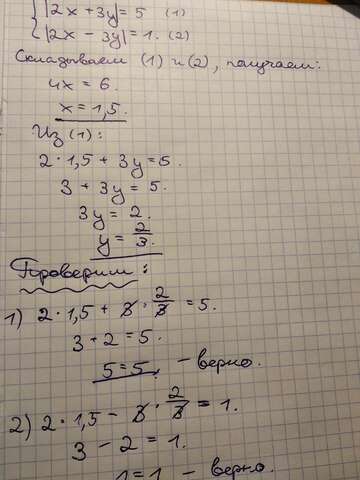 |2x + 3y| = 5 (1)
|2x - 3y| = 1. (2)
Складываем (1) и (2), получаем:
4x = 6.
x = 1,5.
Из (1):
2 · 1,5 + 3y = 5.
3 + 3y = 5.
3y = 2.
y = 2/3.
Проверим:
1) 2 · 1,5 + 3 · 2/3 = 5.
3 + 2 = 5.
5 = 5. - верно.
2) 2 · 1,5 - 3 · 2/3 = 1.
3 - 2 = 1.
1 = 1 - верно.